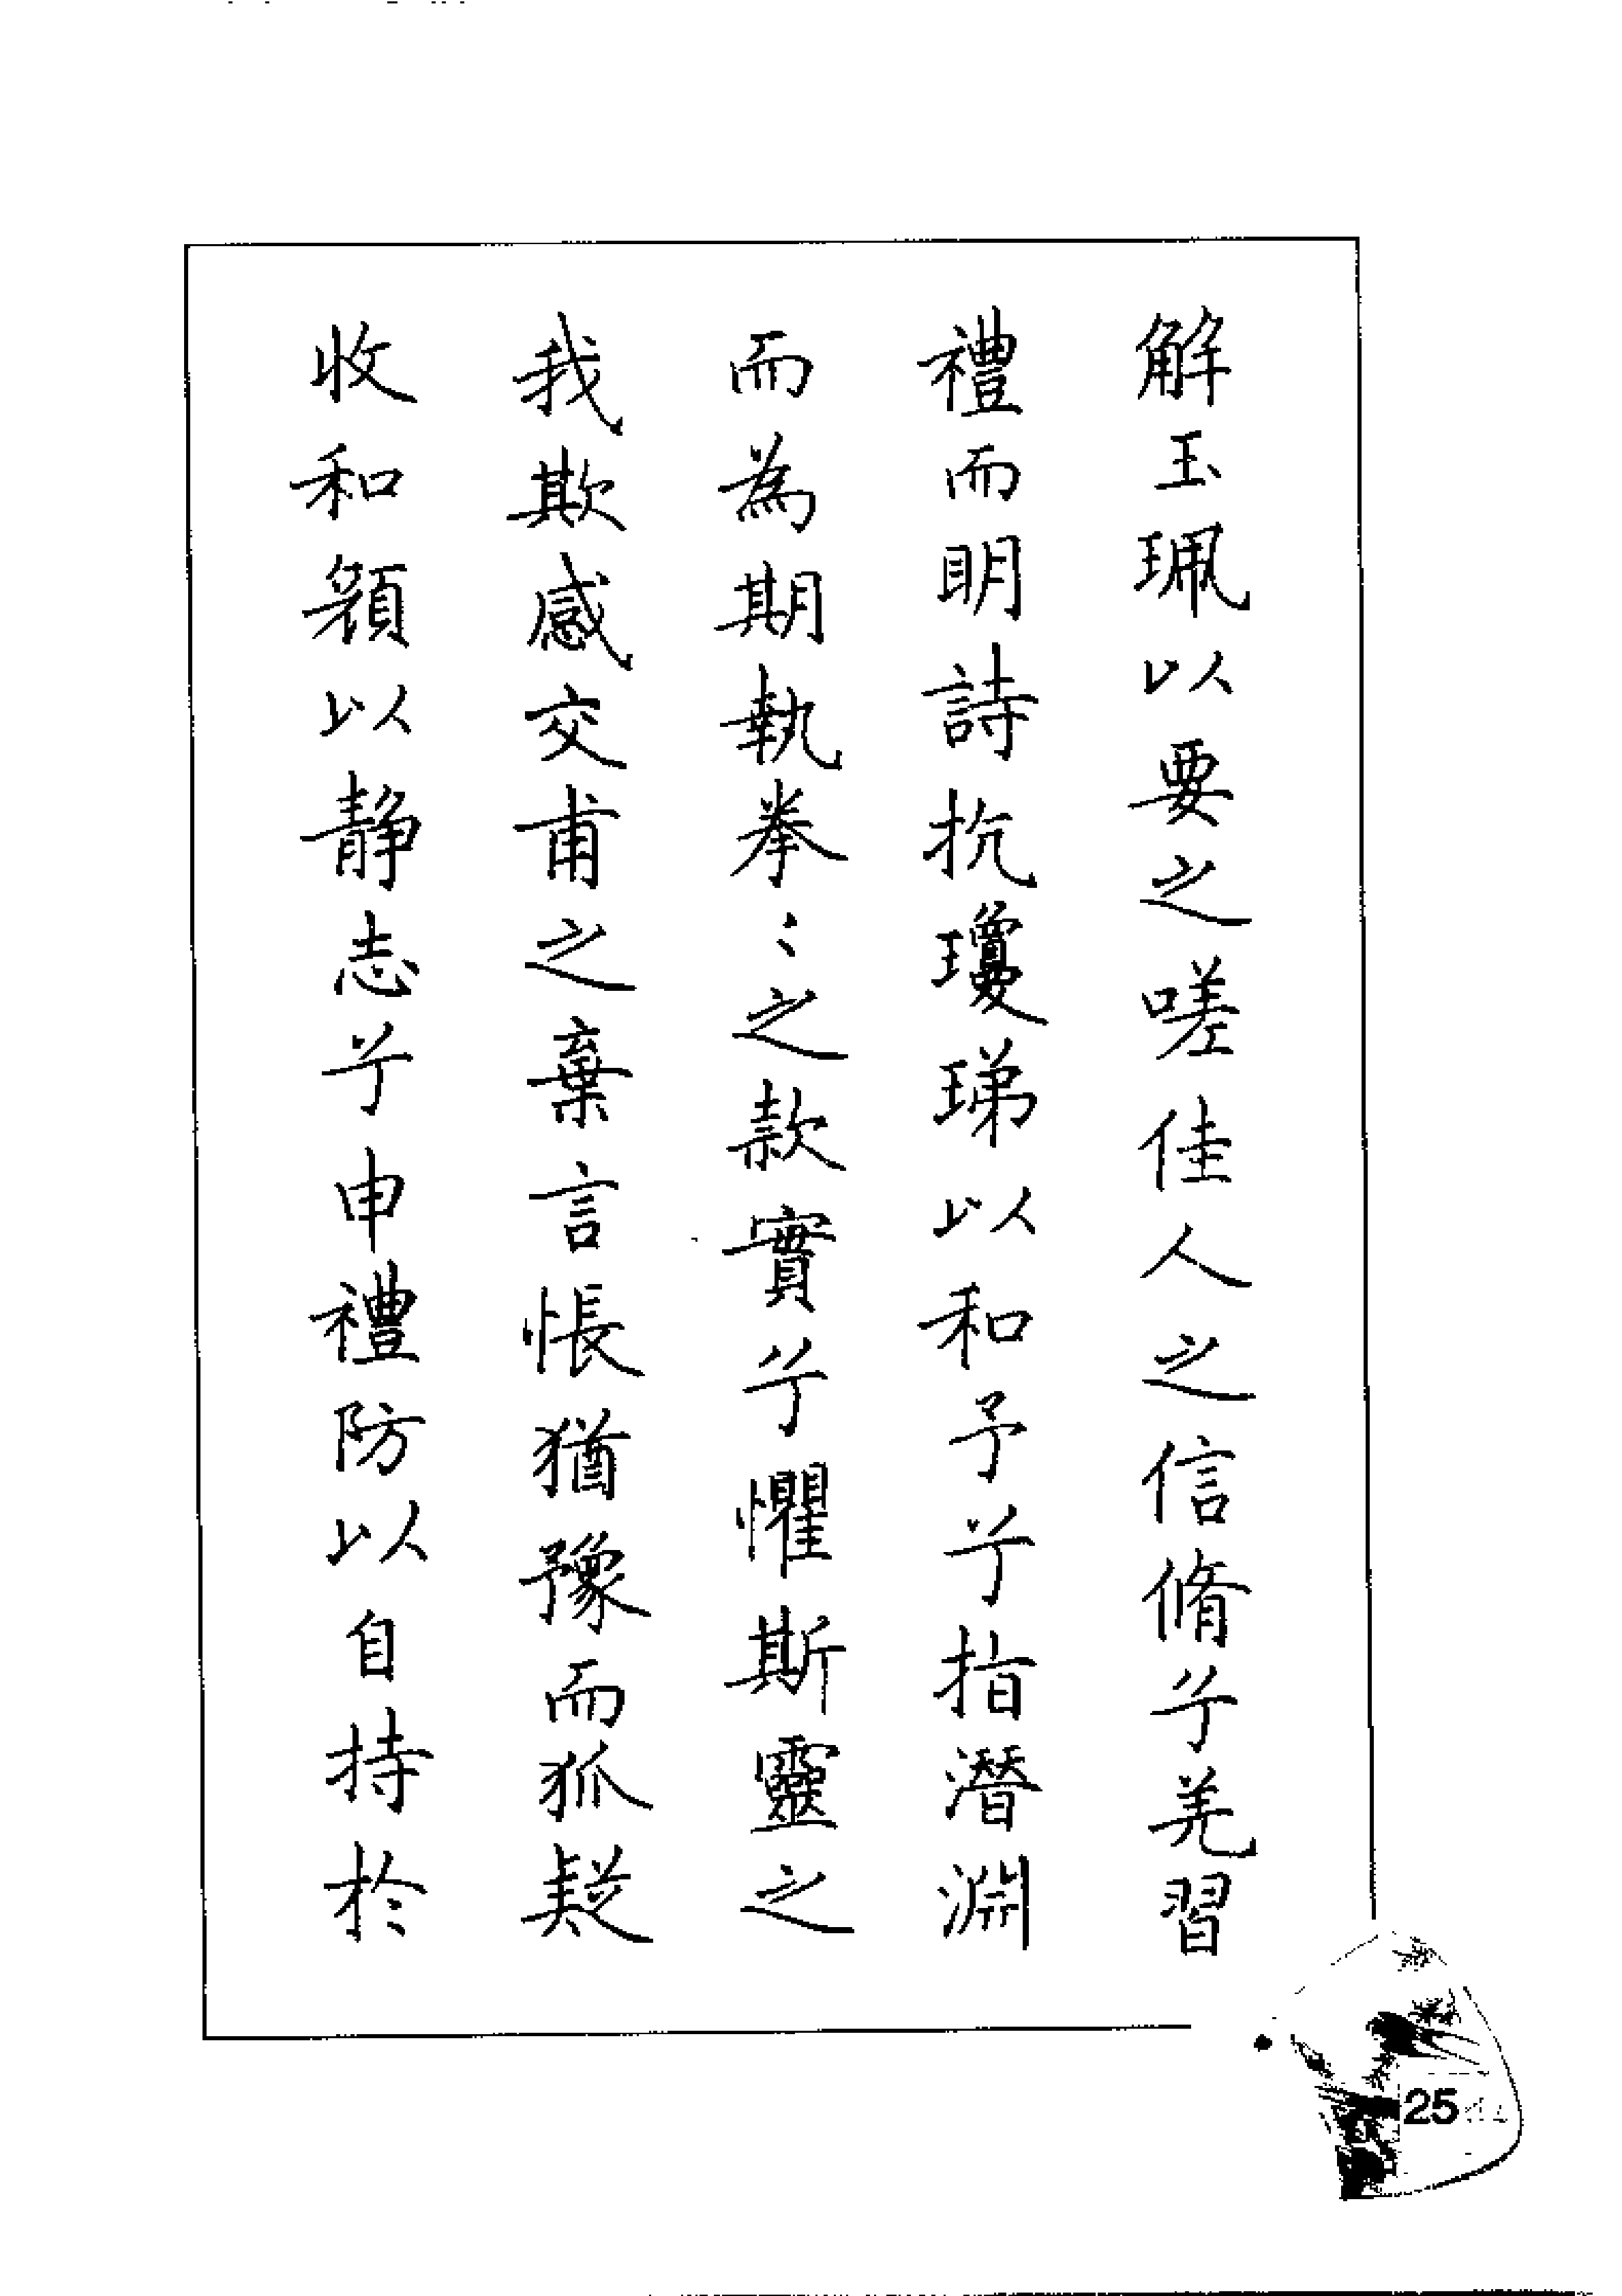 解玉珮以要之嗟佳人之信脩兮羌習
禮而明詩抗瓊珶以和予兮指潛淵
而為期執拳〻之款實兮懼斯靈之
我欺感交甫之棄言悵猶豫而狐疑
收和顏以静志兮申禮防以自持於
25